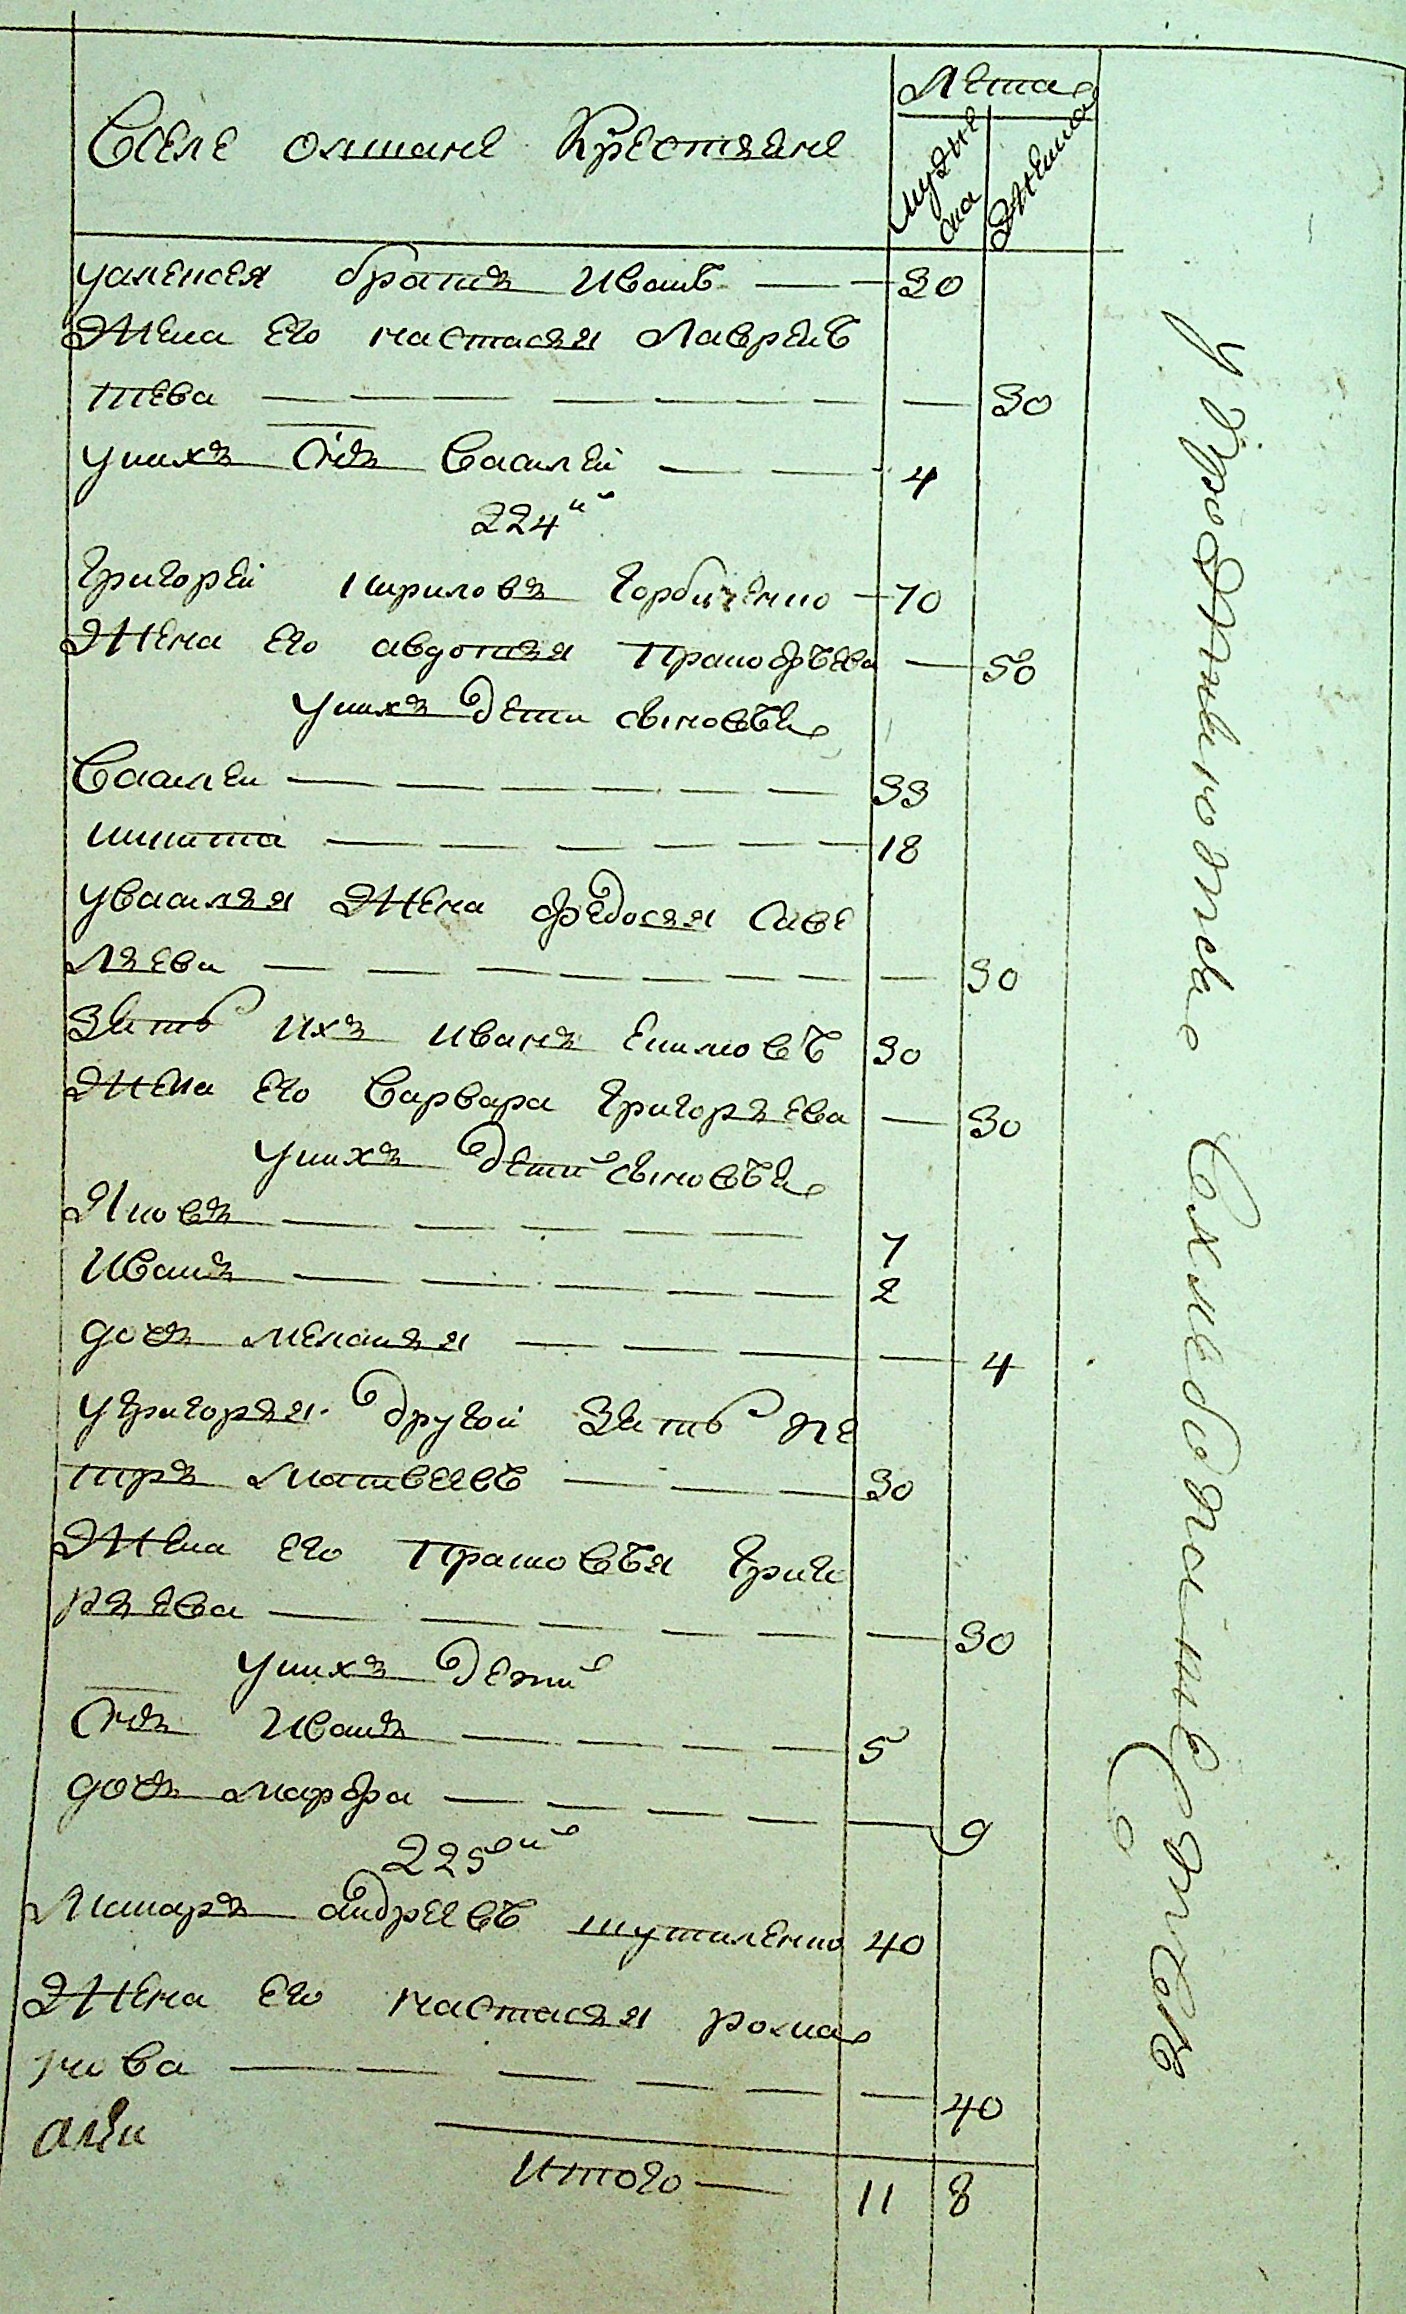 Лета
Вселе олшане Крестяне мужеска Женска
уалексея братъ Иванъ — — 30
Жена его настасья Лаврен
тева — — — — — — — — 30
унихъ Снъ Василей — — 4
224й
Григорей кириловъ Горбиченко — 70
Жена его авдотья Пракофьева — 50
унихъ дети сыновье
Василеи — — — — — — 33
никита — — — — — — 18
увасилья Жена федосья Саве
льева — — — — — — — — 30
Зять ихъ иванъ Екимовъ 30
Жена его Варвара Григорьева — 30
унихъ дети сыновье
Яковъ — — — — — 7
Иванъ — — — — — — 2
дочь меланья — — — — — 4
угригорья другой Зять пе
тръ матвеевъ — — — 30
Жена его Прасковья Григо
рьева — — — — — — — 30
унихъ дети
Снъ Иванъ — — — — — 5
дочь марфа — — — — — 9
225й
Макаръ андреевъ шутиленко 40
Жена его настасья рома
нова — — — — — — — 40
Итого — 11 8